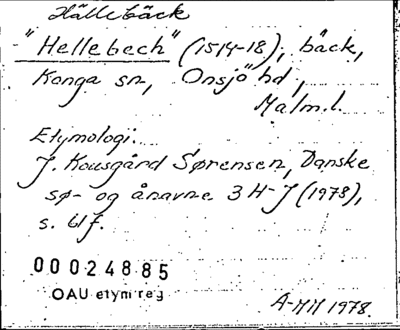 Hällebäck
"Hellebech" (1514-18), bäck,
Konga sn, Onsjö hd,
Malm.l.
Etymologi.
J. Kousgård Sørensen, Danske
sø- og ånavne 3 H-J (1978),
s. 61f.
00024885
OAU etym reg
A-MH 1978.